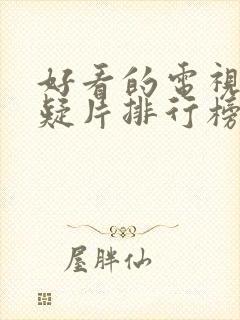 好看的電視
疑片排行榜
屋胖仙